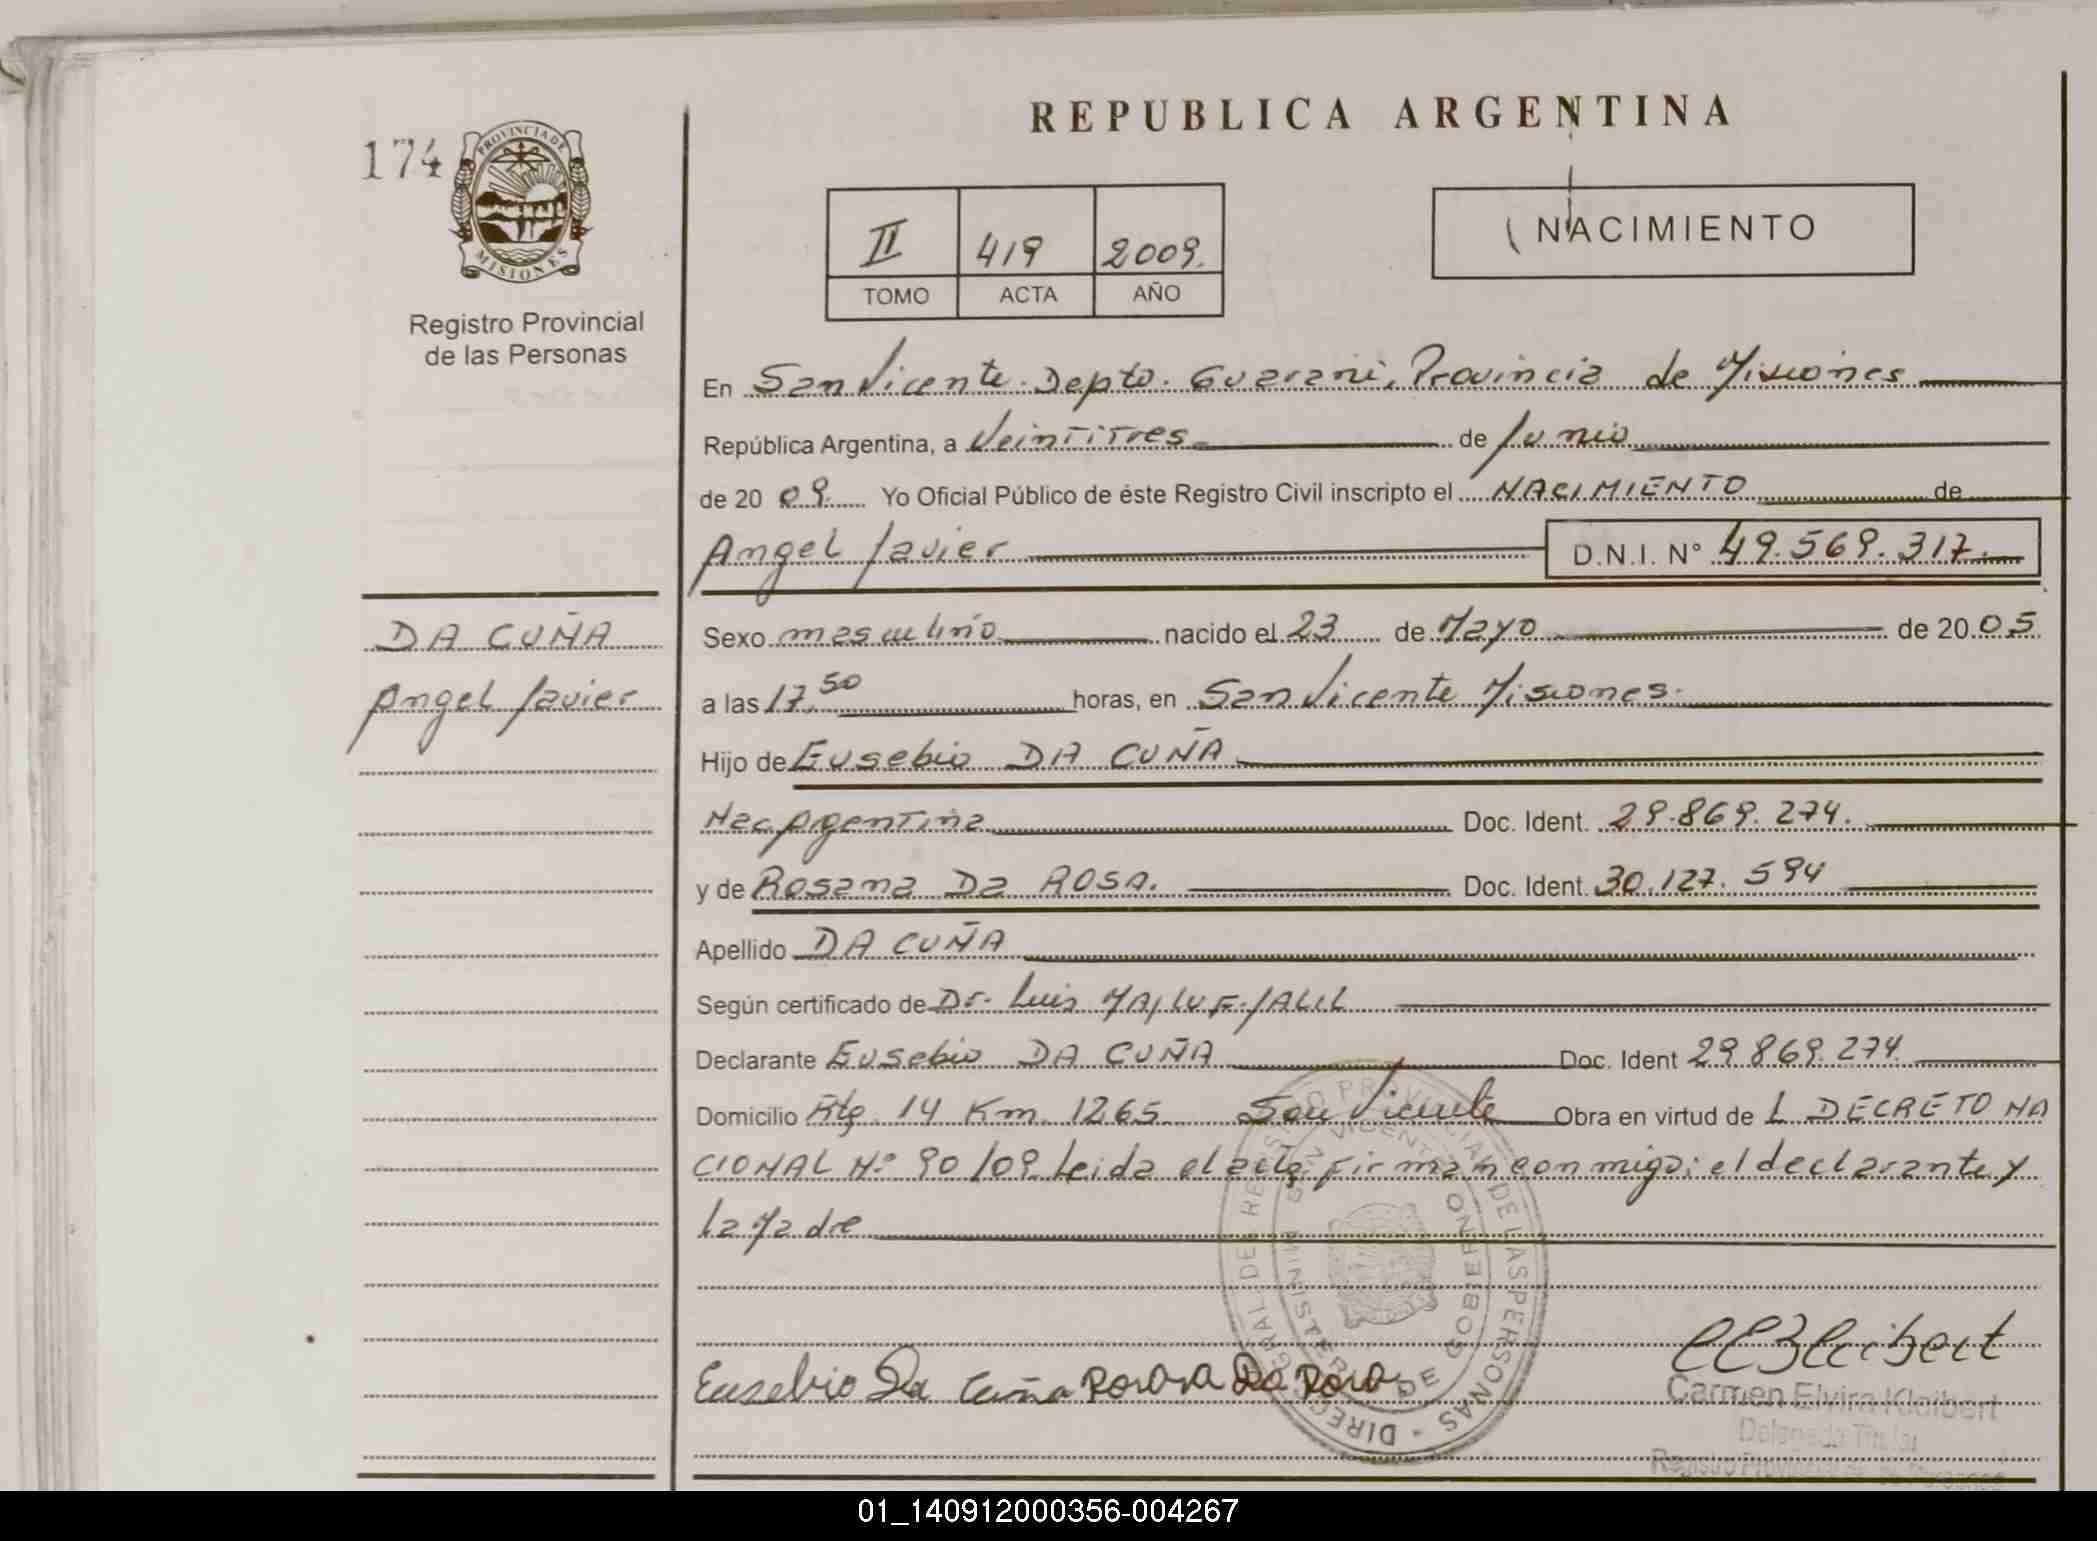 REPUBLICA ARGENTINA
174
PROVINCIA DE
MISIONES
Registro Provincial
de las Personas
II 419 2009.
TOMO ACTA AÑO
NACIMIENTO
En San Vicente. Depto. Guarani, Provincia de Misiones
República Argentina, a Veintitres de Junio
de 20 09. Yo Oficial Público de éste Registro Civil inscripto el NACIMIENTO de
Angel Javier D.N.I. N° 49.569.317.
DA CUÑA
Angel Javier
Sexo masculino nacido el 23 de Mayo de 20 05
a las 17,50 horas, en San Vicente Misiones.
Hijo de Eusebio DA CUÑA
Nac Argentina Doc. Ident. 29.869.274.
y de Rosana Da ROSA. Doc. Ident. 30.127.594
Apellido DA CUÑA
Según certificado de Dr. Luis JALIL
Declarante Eusebio DA CUÑA Doc. Ident 29.869.274.
Domicilio Rta. 14 Km. 1265 San Vicente Obra en virtud de L DECRETO NA
CIONAL N° 90/09. Leida el acta, firman conmigo: el declarante y
la Madre
Eusebio Da Cuña Rosana Da Rosa
Carmen Elvira Kleibert
Delegada Titular
DIRECCION GRAL. DEL REGISTRO PROVINCIAL DE LAS PERSONAS
MINISTERIO DE GOBIERNO
SAN VICENTE
01_140912000356-004267